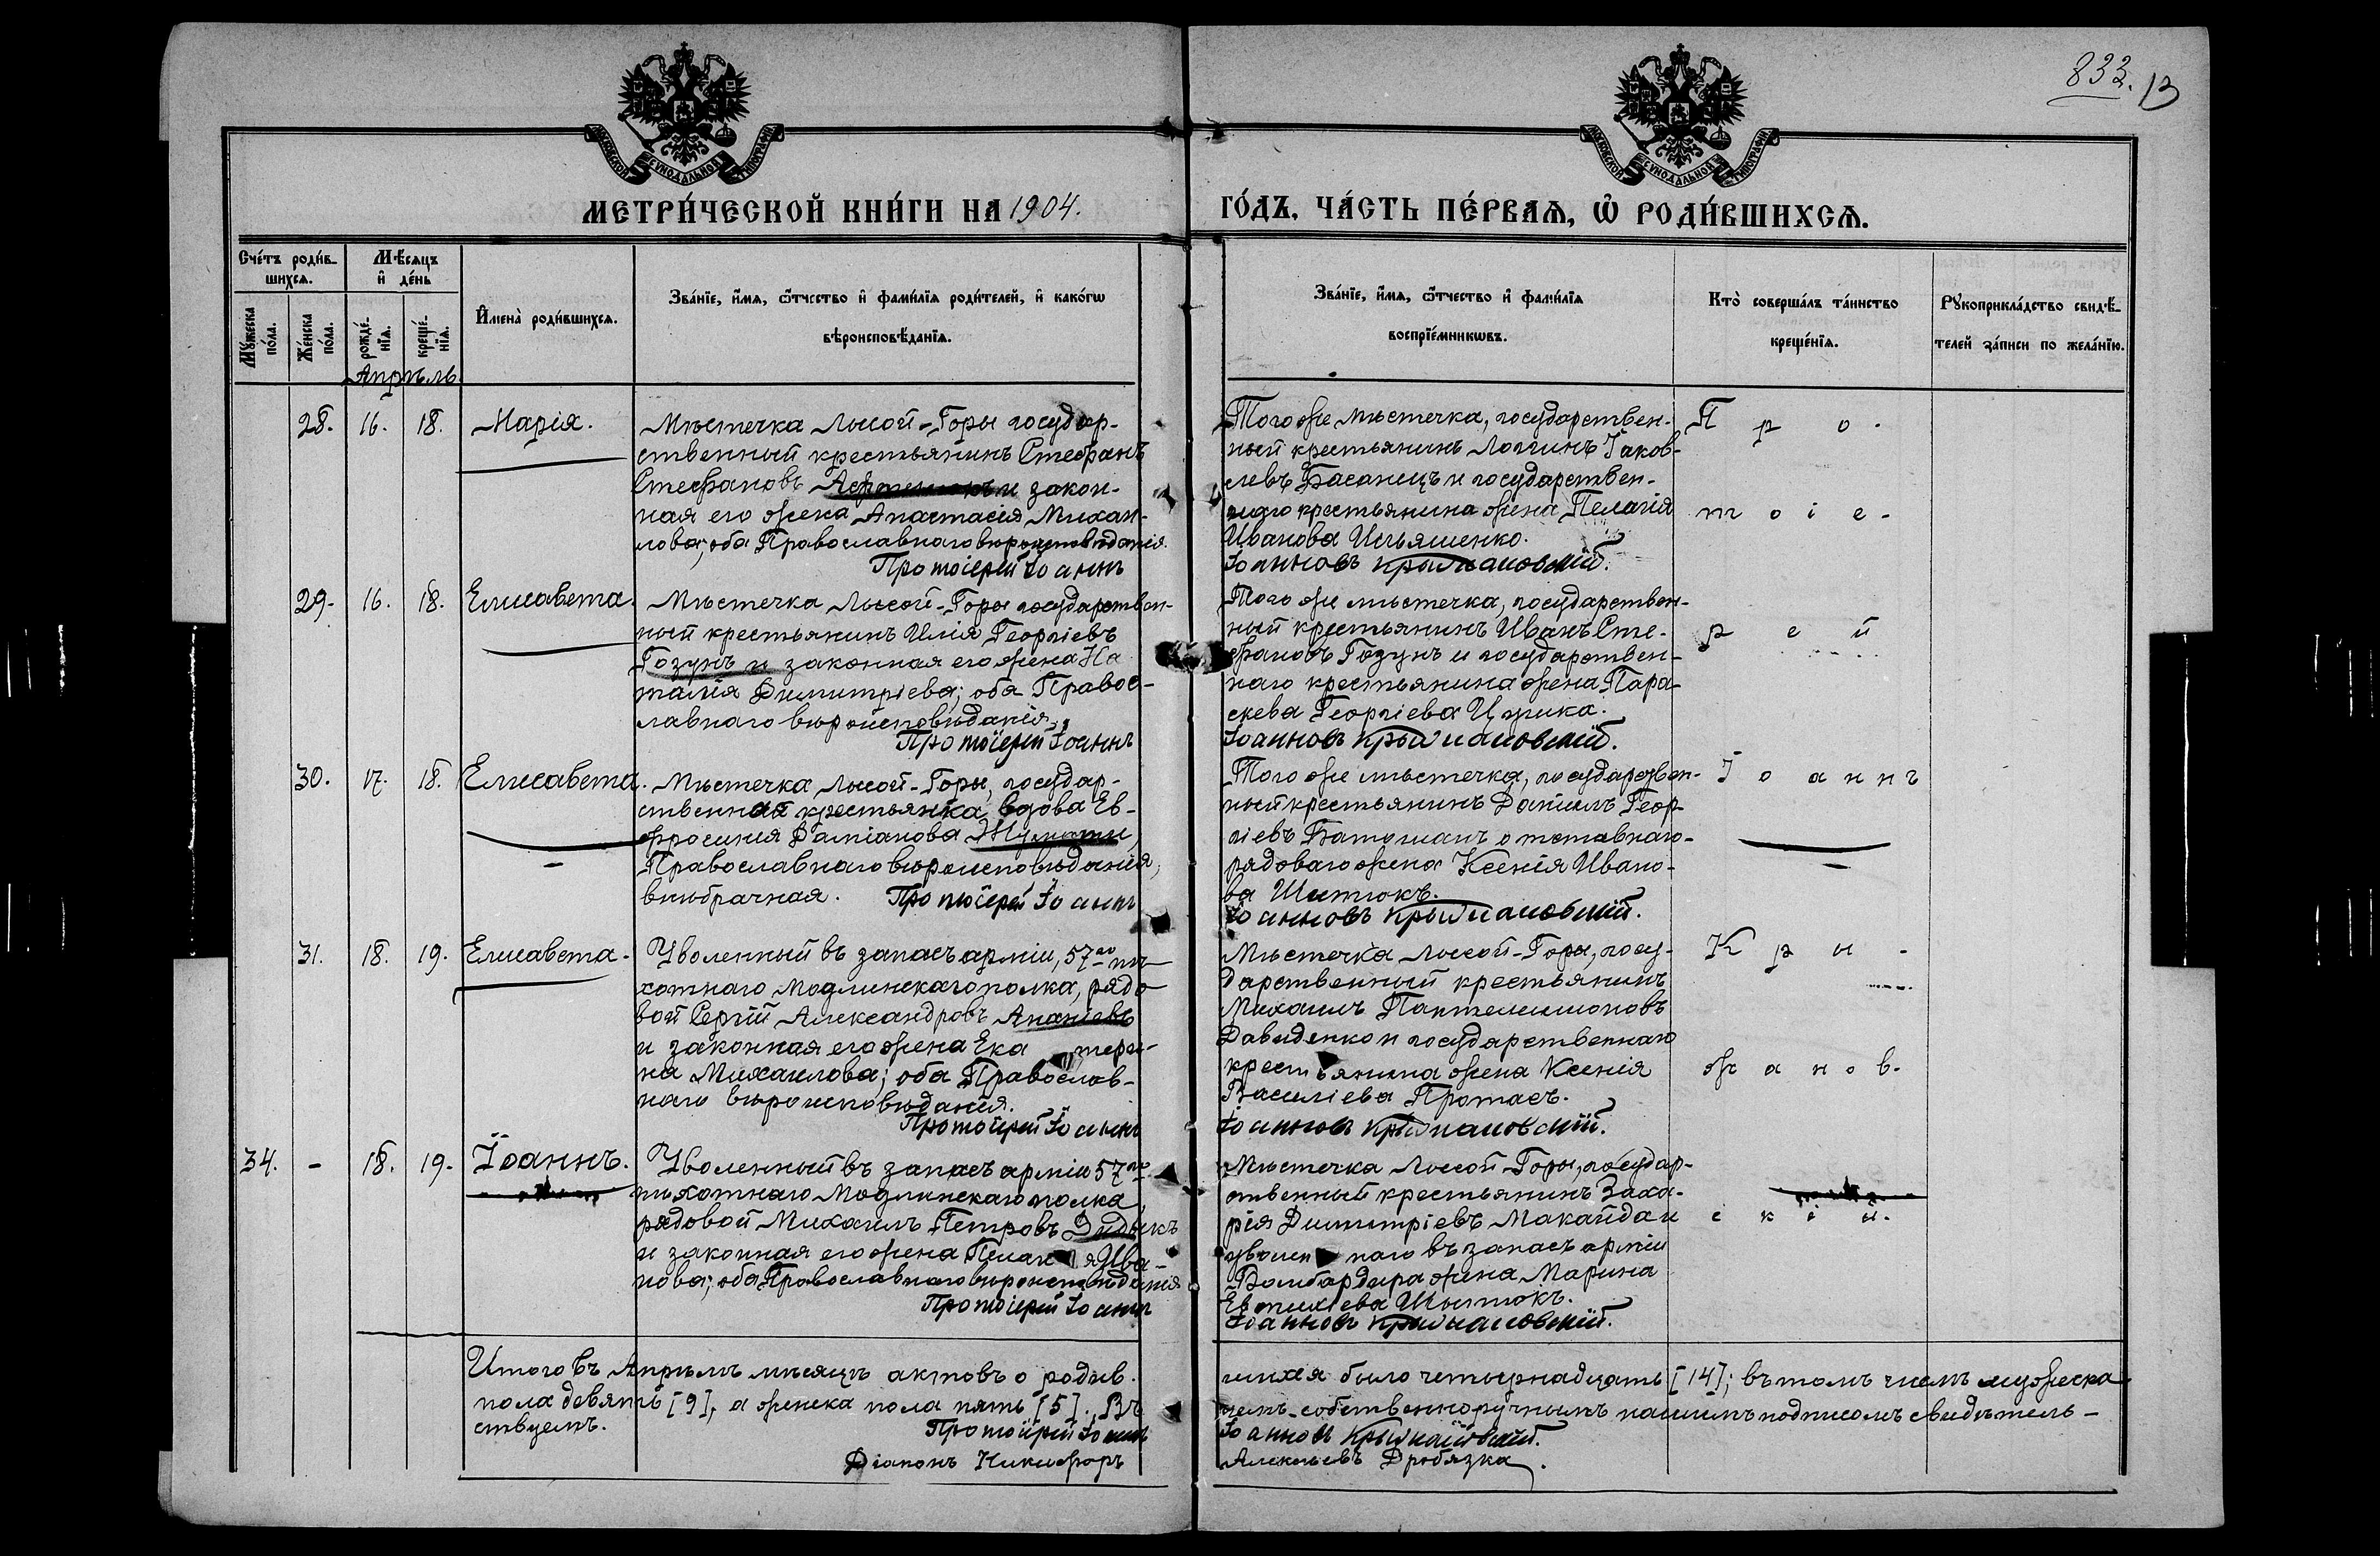 833. 13
МЕТРИ́ЧЕСКОЙ КНИ́ГИ НА 1904.
ГО́ДЪ, ЧА́СТЬ ПЕ́РВАѦ, Ѿ РОДИ́ВШИХСѦ.
Сче́тъ роди́в-
шихсѧ.
Мѣ́сяцъ
и҆ де́нь
Мꙋ́жеска
по́ла.
Же́нска
по́ла.
рожде́-
нїѧ.
креще́-
нїѧ.
И҆мена̀ роди́вшихсѧ.
Зва́нїе, и҆́мѧ, ѻ҆́тчество и҆ фами́лїѧ роди́телей, и҆ како́гѡ
вѣроисповѣ́данїѧ.
Зва́нїе, и҆́мѧ, ѻ҆́тчество и҆ фами́лїѧ
воспрїе́мникѡвъ.
Кто̀ соверша́лъ та́инство
креще́нїѧ.
Рꙋкоприкла́дство свидѣ́-
телей за́писи по жела́нїю.
Апрѣль
28. 16. 18. Марія.
Мѣстечка Лысой-Горы государ-
ственный крестьянинъ Стефанъ
Стефановъ и закон-
ная его жена Анастасія Михаи-
лова; оба Православнаго вѣроисповѣданія.
Протоіерей Іоаннъ
Того же мѣстечка, государствен-
ный крестьянинъ Логгинъ Іаков-
левъ Басанецъ и государствен-
наго крестьянина жена Пелагія
Иванова Ильяшенко.
Іоанновъ Крыжановскій.
Про-
тоіе-
29. 16. 18. Елисавета.
Мѣстечка Лысой-Горы государствен-
ный крестьянинъ Илія Георгіевъ
Гозунъ и законная его жена На
талія Димитріева; оба Правос-
лавнаго вѣроисповѣданія.
Протоіерей Іоаннъ
Того же мѣстечка, государствен-
ный крестьянинъ Иванъ Сте-
фановъ Гозунъ и государствен-
наго крестьянина жена Пара-
скева Георгіева Цурика.
Іоанновъ Крыжановскій.
рей
30. 17. 18. Елисавета.
Мѣстечка Лысой-Горы, государ-
ственная крестьянка вдова Ев-
фросинія Даміанова
Православнаго вѣроисповѣданія,
внѣбрачная. Протоіерей Іоаннъ
Того же мѣстечка, государствен-
ный крестьянинъ Даніилъ Геор-
гіевъ Батошанъ отставнаго
рядоваго жена Ксенія Ивано-
ва Шитюкъ.
Іоанновъ Крыжановскій.
Іоаннъ
31. 18. 19. Елисавета.
Уволенный въ запасъ арміи, 57го пѣ
хотнаго Модлинскаго полка, рядо
вой Сергій Александровъ Ананьевъ
и законная его жена Ека тери-
на Михаилова; оба Православ-
наго вѣроисповѣданія.
Протоіерей Іоаннъ
Мѣстечка Лысой-Горы, госу-
дарственный крестьянинъ
Михаилъ Пантелеимоновъ
Давиденко и государственнаго
крестьянина жена Ксенія
Василіева Протасъ.
Іоанновъ Крыжановскій.
Кры-
жанов-
34. - 18. 19. Іоаннъ.
Уволенный въ запасъ арміи 57го
пѣхотнаго Модлинскаго полка,
рядовой Михаилъ Петровъ Дидыкъ
и законная его жена Пелагія Ива-
нова; оба Православнаго вѣроисповѣданія
Протоіерей Іоаннъ
Мѣстечка Лысой-Горы, государ-
ственный крестьянинъ Заха-
рія Димитріевъ Макайда и
уволеннаго въ запасъ арміи
Бомбардира жена Марина
Евтихіева Шитюкъ.
Іоанновъ Крыжановскій.
скій.
Итого въ Апрѣлѣ мѣсяцѣ актовъ о родив-
шихся было четырнадцать [14]; въ томъ числѣ мужеска
пола девять [9], а женска пола пять [5]. Въ
чемъ собственноручнымъ нашимъ подписомъ свидѣтель-
ствуемъ.
Протоіерей Іоаннъ
Іоанновъ Крыжановскій.
Діаконъ Никифоръ
Алексіевъ Дробязка.